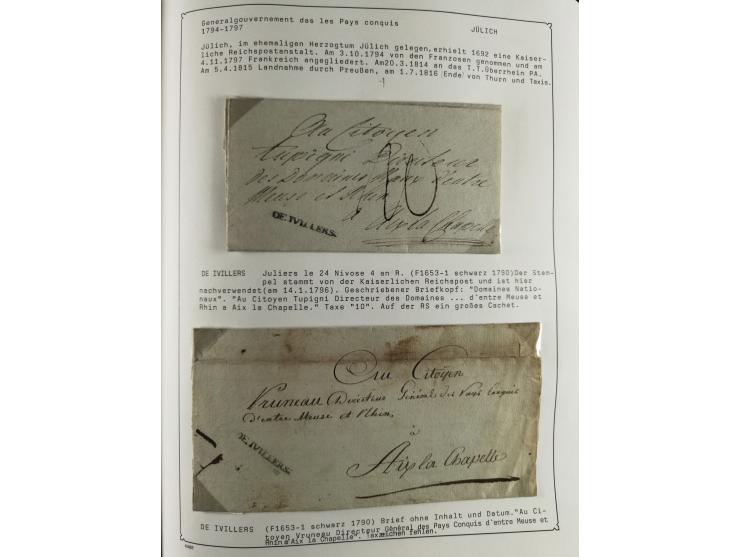 Generalgouvernement das les Pays conquis
1794-1797
JÜLICH
Jülich, im ehemaligen Herzogtum Jülich gelegen, erhielt 1692 eine Kaiser-
liche Reichspostanstalt. Am 3.10.1794 von den Franzosen genommen und am
4.11.1797 Frankreich angegliedert. Am20.3.1814 an das T.T.Überrhein PA.
Am 5.4.1815 Landnahme durch Preußen, am 1.7.1816 (Ende) von Thurn und Taxis.
Au Citoyen
Tupigni Directeur
des Domaines Naux d'entre
Meuse et Rhin
10
a Aix la Chapelle
DE IVILLERS.
DE IVILLERS Juliers le 24 Nivose 4 an R. (F1653-1 schwarz 1790)Der Stem-
pel stammt von der Kaiserlichen Reichspost und ist hier
nachverwendet(am 14.1.1796). Geschriebener Briefkopf: "Domaines Natio-
naux". "Au Citoyen Tupigni Directeur des Domaines ... d'entre Meuse et
Rhin a Aix la Chapelle." Taxe "10". Auf der RS ein großes Cachet.
Au Citoyen
Vruneau Directeur Général des Pays Conquis
d'entre Meuse et Rhin,
à
Aix la Chapelle
DE IVILLERS.
DE IVILLERS (F1653-1 schwarz 1790) Brief ohne Inhalt und Datum."Au Ci-
toyen Vruneau Directeur Général des Pays Conquis d'entre Meuse et
Rhin a Aix la Chapelle". Taxzeichen fehlen.